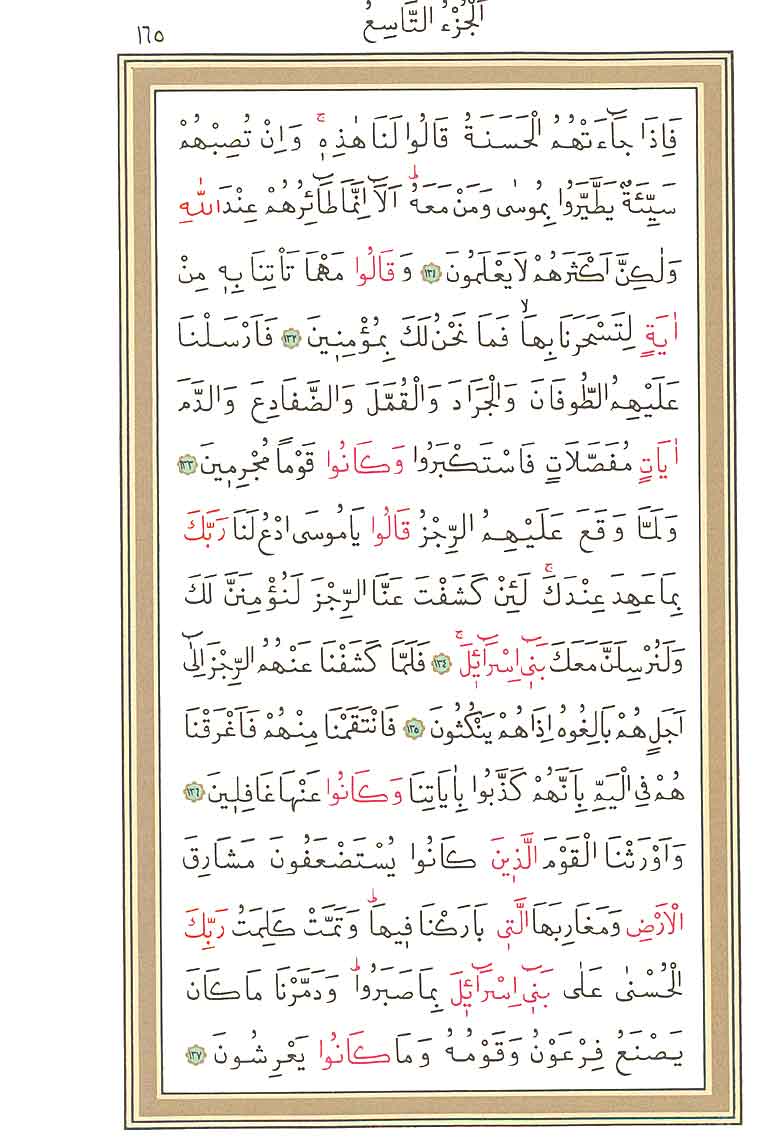 اَلْجُزْءُ التَّاسِعُ ١٦٥
فَاِذَا جَٓاءَتْهُمُ الْحَسَنَةُ قَالُوا لَنَا هٰذِه۪ۚ وَاِنْ تُصِبْهُمْ
سَيِّئَةٌ يَطَّيَّرُوا بِمُوسٰى وَمَنْ مَعَهُۜ اَلَٓا اِنَّمَا طَٓائِرُهُمْ عِنْدَ اللّٰهِ
وَلٰكِنَّ اَكْثَرَهُمْ لَا يَعْلَمُونَ ﴿١٣١﴾ وَقَالُوا مَهْمَا تَأْتِنَا بِه۪ مِنْ
اٰيَةٍ لِتَسْحَرَنَا بِهَاۙ فَمَا نَحْنُ لَكَ بِمُؤْمِن۪ينَ ﴿١٣٢﴾ فَاَرْسَلْنَا
عَلَيْهِمُ الطُّوفَانَ وَالْجَرَادَ وَالْقُمَّلَ وَالضَّفَادِعَ وَالدَّمَ
اٰيَاتٍ مُفَصَّلَاتٍ فَاسْتَكْبَرُوا وَكَانُوا قَوْماً مُجْرِم۪ينَ ﴿١٣٣﴾
وَلَمَّا وَقَعَ عَلَيْهِمُ الرِّجْزُ قَالُوا يَا مُوسَى ادْعُ لَنَا رَبَّكَ
بِمَا عَهِدَ عِنْدَكَۚ لَئِنْ كَشَفْتَ عَنَّا الرِّجْزَ لَنُؤْمِنَنَّ لَكَ
وَلَنُرْسِلَنَّ مَعَكَ بَن۪ٓي اِسْرَٓائ۪لَۚ ﴿١٣٤﴾ فَلَمَّا كَشَفْنَا عَنْهُمُ الرِّجْزَ اِلٰٓى
اَجَلٍ هُمْ بَالِغُوهُ اِذَا هُمْ يَنْكُثُونَ ﴿١٣٥﴾ فَانْتَقَمْنَا مِنْهُمْ فَاَغْرَقْنَا
هُمْ فِي الْيَمِّ بِاَنَّهُمْ كَذَّبُوا بِاٰيَاتِنَا وَكَانُوا عَنْهَا غَافِل۪ينَ ﴿١٣٦﴾
وَاَوْرَثْنَا الْقَوْمَ الَّذ۪ينَ كَانُوا يُسْتَضْعَفُونَ مَشَارِقَ
الْاَرْضِ وَمَغَارِبَهَا الَّت۪ي بَارَكْنَا ف۪يهَاۜ وَتَمَّتْ كَلِمَتُ رَبِّكَ
الْحُسْنٰى عَلٰى بَن۪ٓي اِسْرَٓائ۪لَ بِمَا صَبَرُواۜ وَدَمَّرْنَا مَا كَانَ
يَصْنَعُ فِرْعَوْنُ وَقَوْمُهُ وَمَا كَانُوا يَعْرِشُونَ ﴿١٣٧﴾